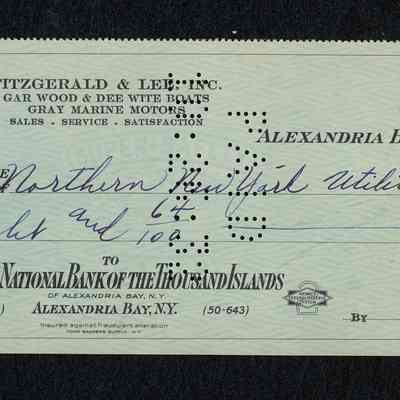 ITZGERALD & LEE, INC.
GAR WOOD & DEE WITE BOATS
GRAY MARINE MOTORS
SALES - SERVICE - SATISFACTION
ALEXANDRIA B
E Northern New York Utili
ht and 64/100
TO
NATIONAL BANK OF THE THOUSAND ISLANDS
OF ALEXANDRIA BAY, N.Y.
ALEXANDRIA BAY, N.Y. (50-643)
BY
Insured against fraudulent alteration
PAID